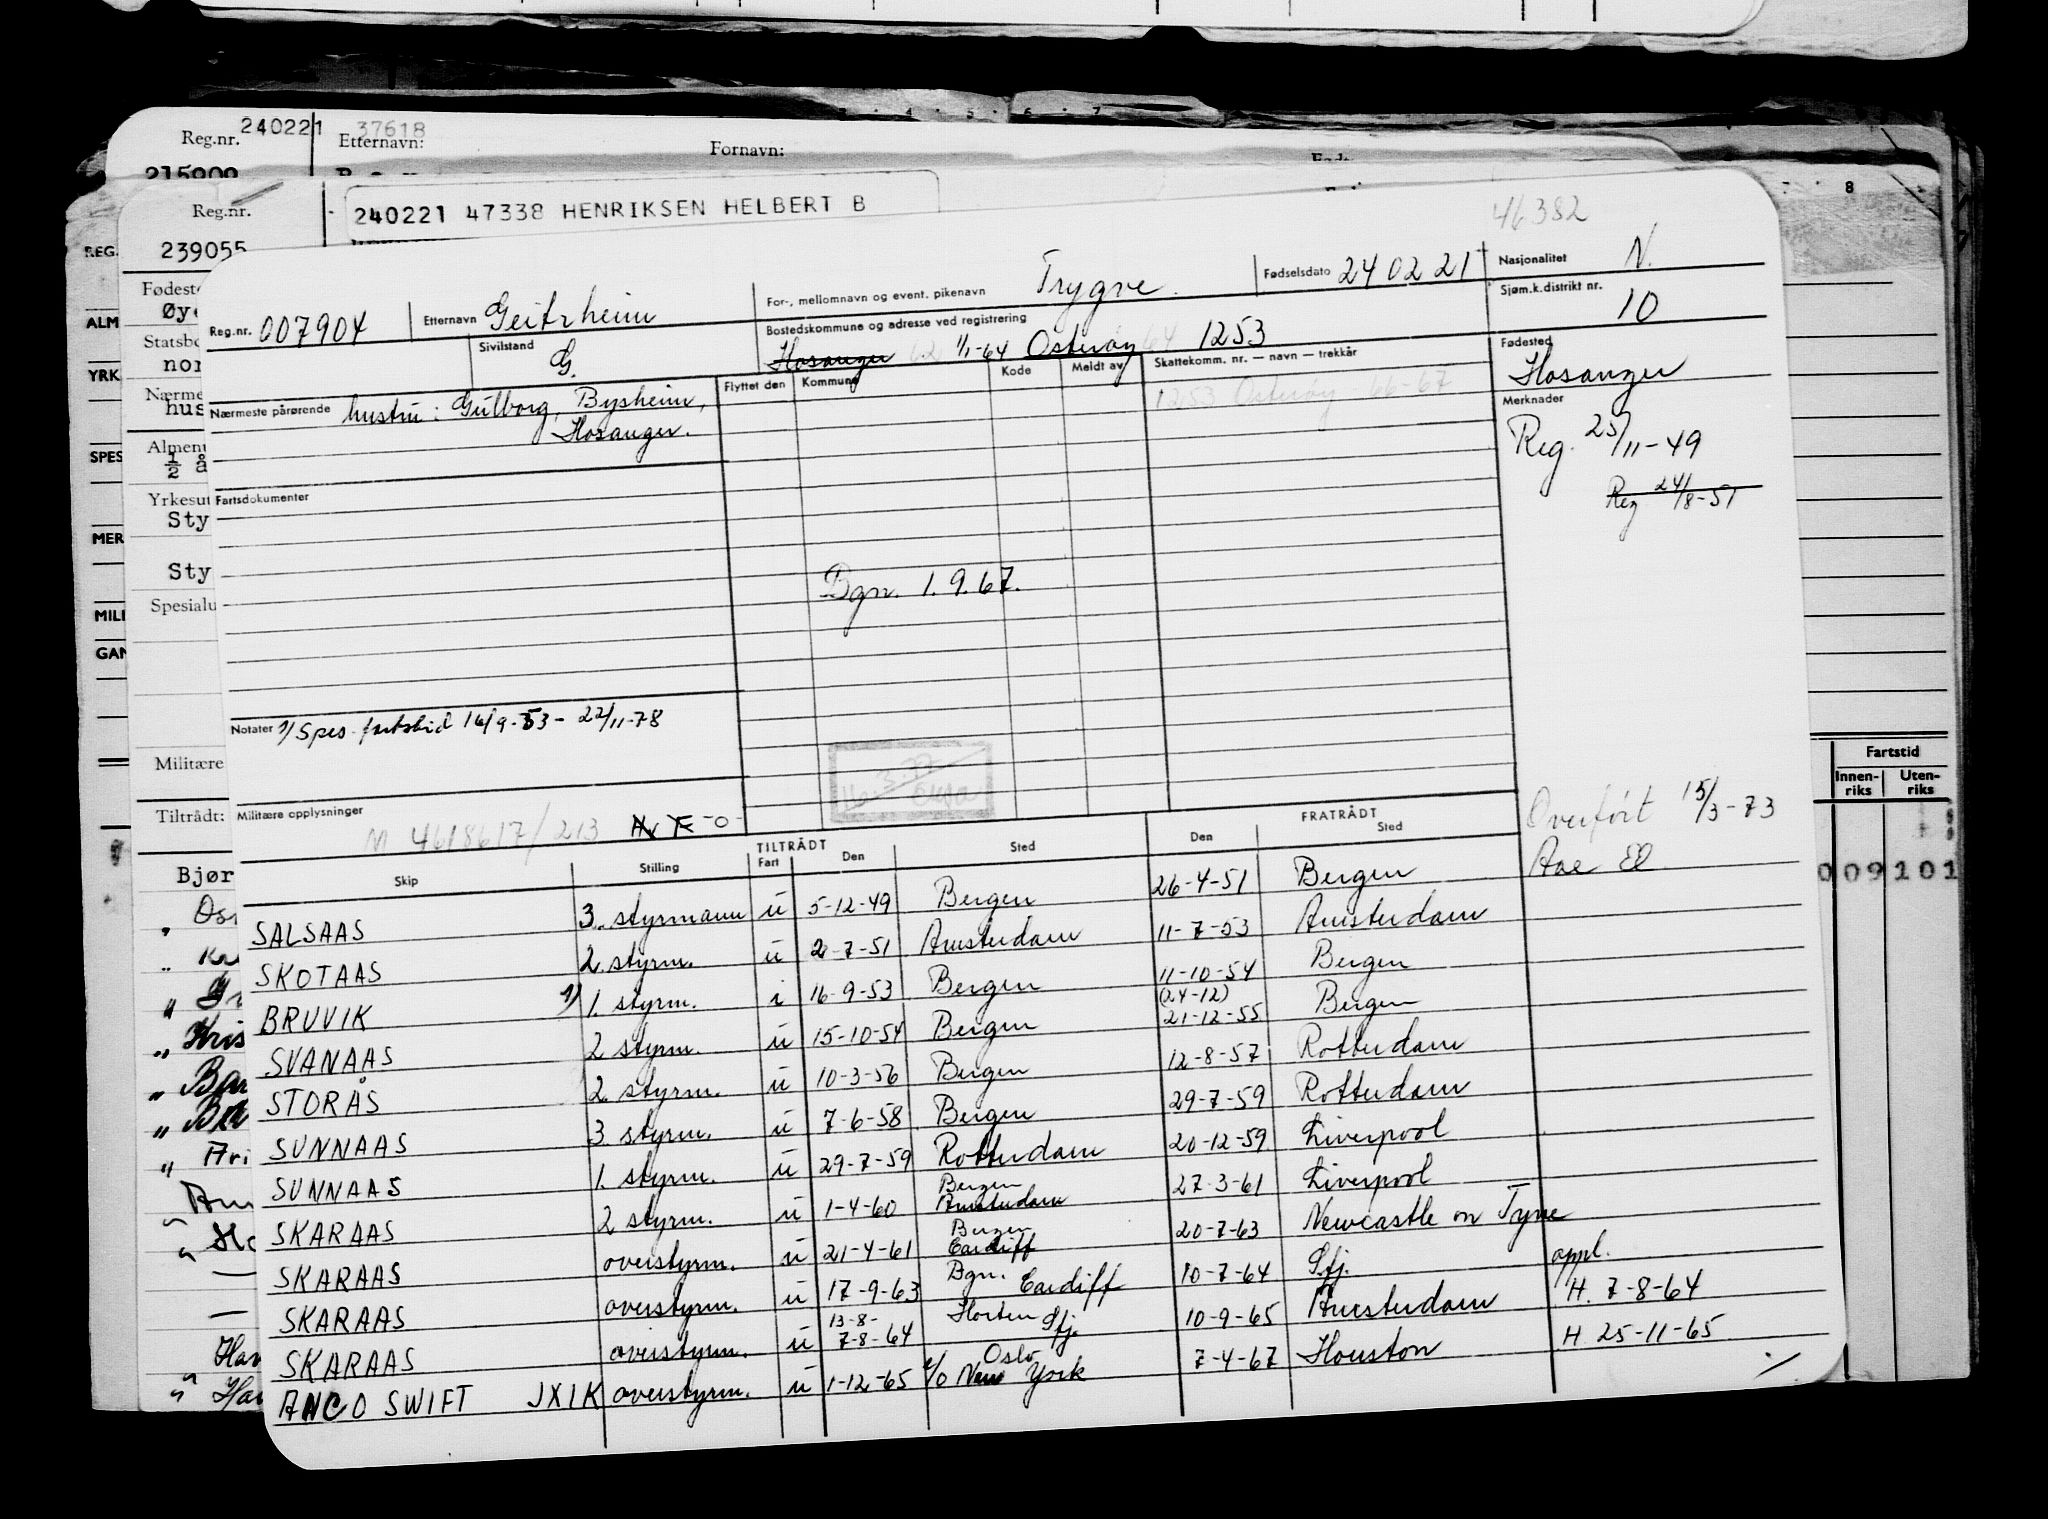 Reg.nr. 240221 37618 Etternavn: Fornavn:
215909
Reg.nr. 240221 47338 HENRIKSEN HELBERT B
239055
46382
Reg.nr. 007904 Etternavn Geitrheim For-, mellomnavn og event. pikenavn Trygve. Fødselsdato 24 02 21 Nasjonalitet N.
Sivilstand G. Bostedskommune og adresse ved registrering Hosanger 1/1-64 Osterøy 64 1253 Sjøm.k.distrikt nr. 10
Flyttet den Kommune Kode Meldt av Skattekomm. nr. — navn — trekkår Fødested Hosanger
Nærmeste pårørende hustru: Gulborg, Bysheim, 1253 Osterøy 66-67
Hosanger. Merknader
Reg. 25/11-49
Reg 24/8-51
Fartsdokumenter
Bgn. 1.9.67.
Notater 1/ Spes. fartstid 16/9-53 - 22/11-78
Militære opplysninger
M 4618617/213
Overført 15/3-73
Aae El.
TILTRÅDT FRATRÅDT
Skip Stilling Fart Den Sted Den Sted
SALSAAS 3. styrmann u 5-12-49 Bergen 26-4-51 Bergen
SKOTAAS 2. styrm. u 2-7-51 Amsterdam 11-7-53 Amsterdam
BRUVIK 1) 1. styrm. i 16-9-53 Bergen 11-10-54 Bergen
SVANAAS 2 styrm. u 15-10-54 Bergen (24-12) 21-12-55 Bergen
STORÅS 2 styrm. u 10-3-56 Bergen 12-8-57 Rotterdam
SUNNAAS 3 styrm. u 7-6-58 Bergen 29-7-59 Rotterdam
SUNNAAS 1. styrm. u 29-7-59 Rotterdam 20-12-59 Liverpool
SKARAAS 2 styrm. u 1-4-60 Bergen Amsterdam 27-3-61 Liverpool
SKARAAS overstyrm. u 21-4-61 Bergen Cardiff 20-7-63 Newcastle on Tyne
SKARAAS overstyrm. u 17-9-63 Bgn. Cardiff 10-7-64 Sfj. oppl.
SKARAAS overstyrm. u 13-8- 7-8-64 Horten Sfj. 10-9-65 Amsterdam H. 7-8-64
ANCO SWIFT JXIK overstyrm. u 1-12-65 Oslo t/o New York 7-4-67 Houston H. 25-11-65
REG.
ALM
YRK
SPES
MER
MILI
GAN
Fødeste
Øye
Statsbo
nor
Nærme
hus
Almenu
½ å
Yrkesut
Sty
Sty
Spesialu
Militære
Tiltrådt:
Bjør
Kris
Ari
Har
Har
8
Fartstid
Innen-riks Uten-riks
009101